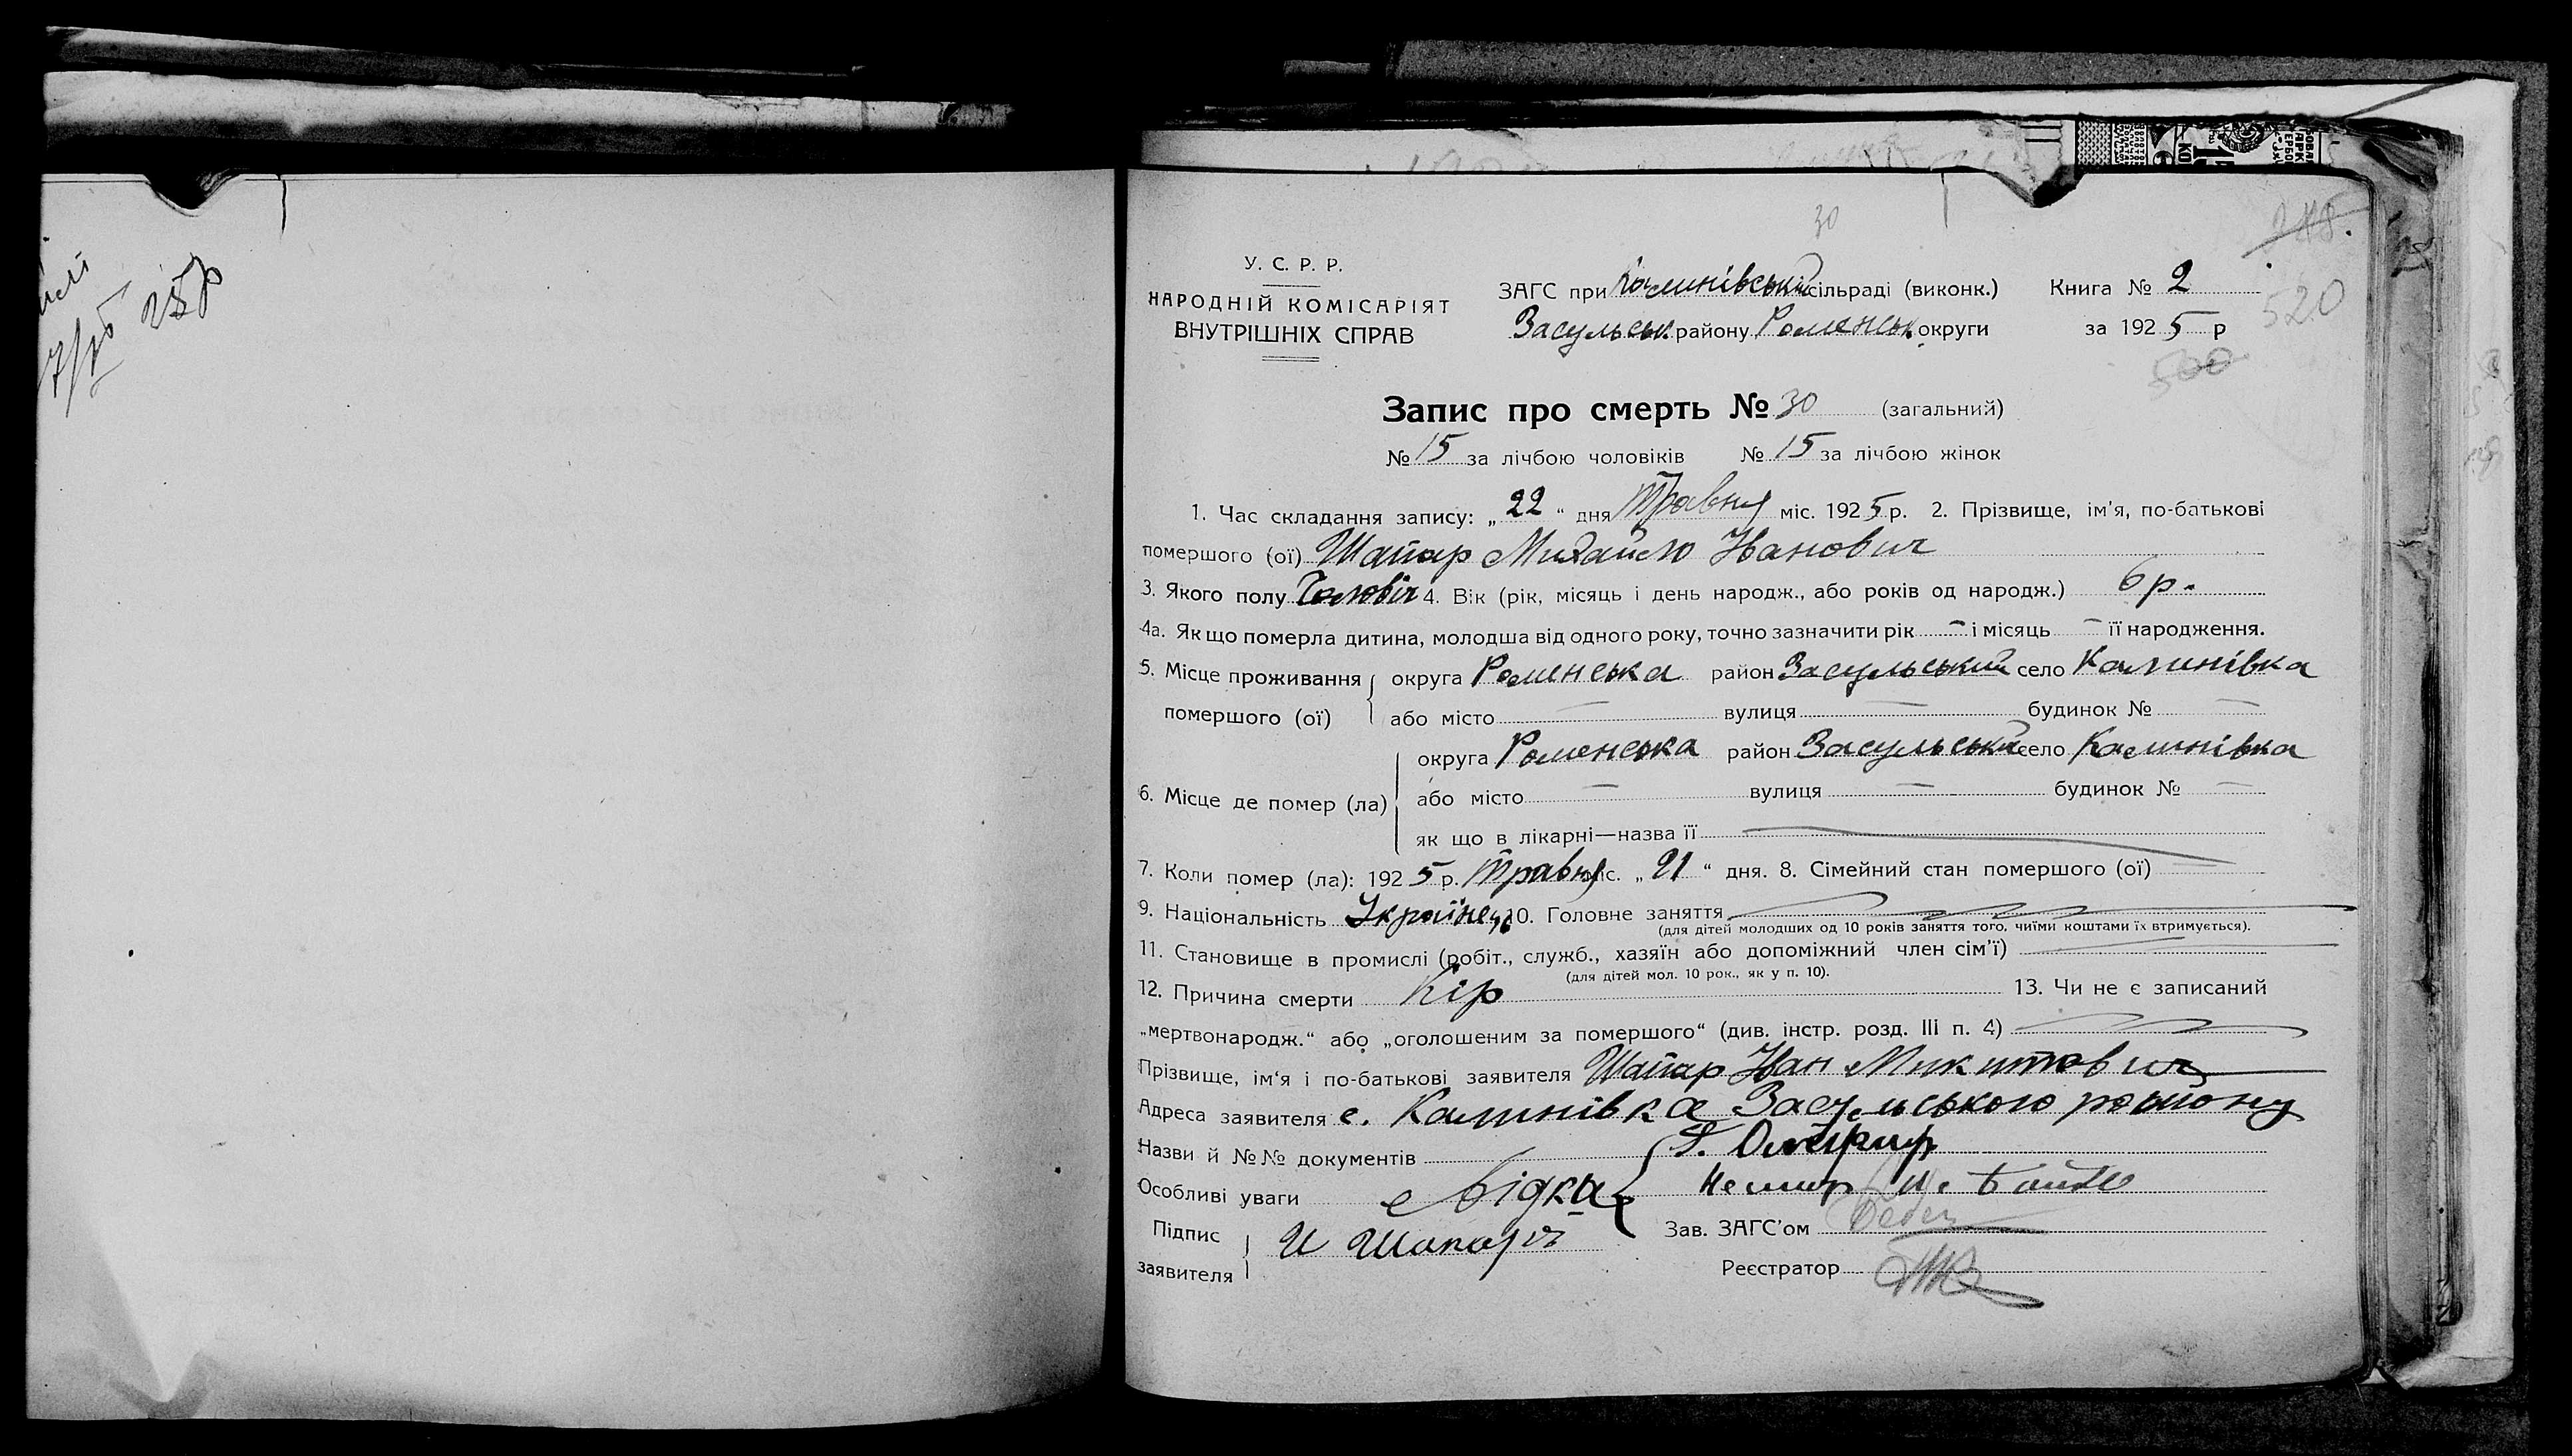 25р
30
У. С. Р. Р.
НАРОДНІЙ КОМІСАРІЯТ
ВНУТРІШНІХ СПРАВ
ЗАГС при Калинівській сільраді (виконк.) Книга № 2
Засульськ району Роменськ округи за 1925 р
520
500
Запис про смерть № 30 (загальний)
№ 15 за лічбою чоловіків № 15 за лічбою жінок
1. Час складання запису: „22“ дня Травня міс. 1925 р. 2. Прізвище, ім'я, по-батькові
помершого (ої) Шапар Михайло Іванович
3. Якого полу Чоловіч 4. Вік (рік, місяць і день народж., або років од народж.) 6 р.
4а. Як що померла дитина, молодша від одного року, точно зазначити рік — і місяць — її народження.
5. Місце проживання помершого (ої) округа Роменська район Засульський село Калинівка
або місто — вулиця — будинок № —
6. Місце де помер (ла) округа Роменська район Засульський село Калинівка
або місто — вулиця — будинок № —
як що в лікарні—назва її
7. Коли помер (ла): 1925 р. Травня міс. „21“ дня. 8. Сімейний стан помершого (ої) —
9. Національність Українець 10. Головне заняття
(для дітей молодших од 10 років заняття того, чиїми коштами їх втримується).
11. Становище в промислі (робіт., служб., хазяїн або допоміжний член сім'ї)
(для дітей мол. 10 рок., як у п. 10).
12. Причина смерти Кір 13. Чи не є записаний
„мертвонародж.“ або „оголошеним за помершого“ (див. інстр. розд. III п. 4)
Прізвище, ім'я і по-батькові заявителя Шапар Іван Микитович
Адреса заявителя с. Калинівка Засульського району
Назви й №№ документів
Особливі уваги свідки
Підпис заявителя И Шапарь
Зав. ЗАГС'ом
Реєстратор